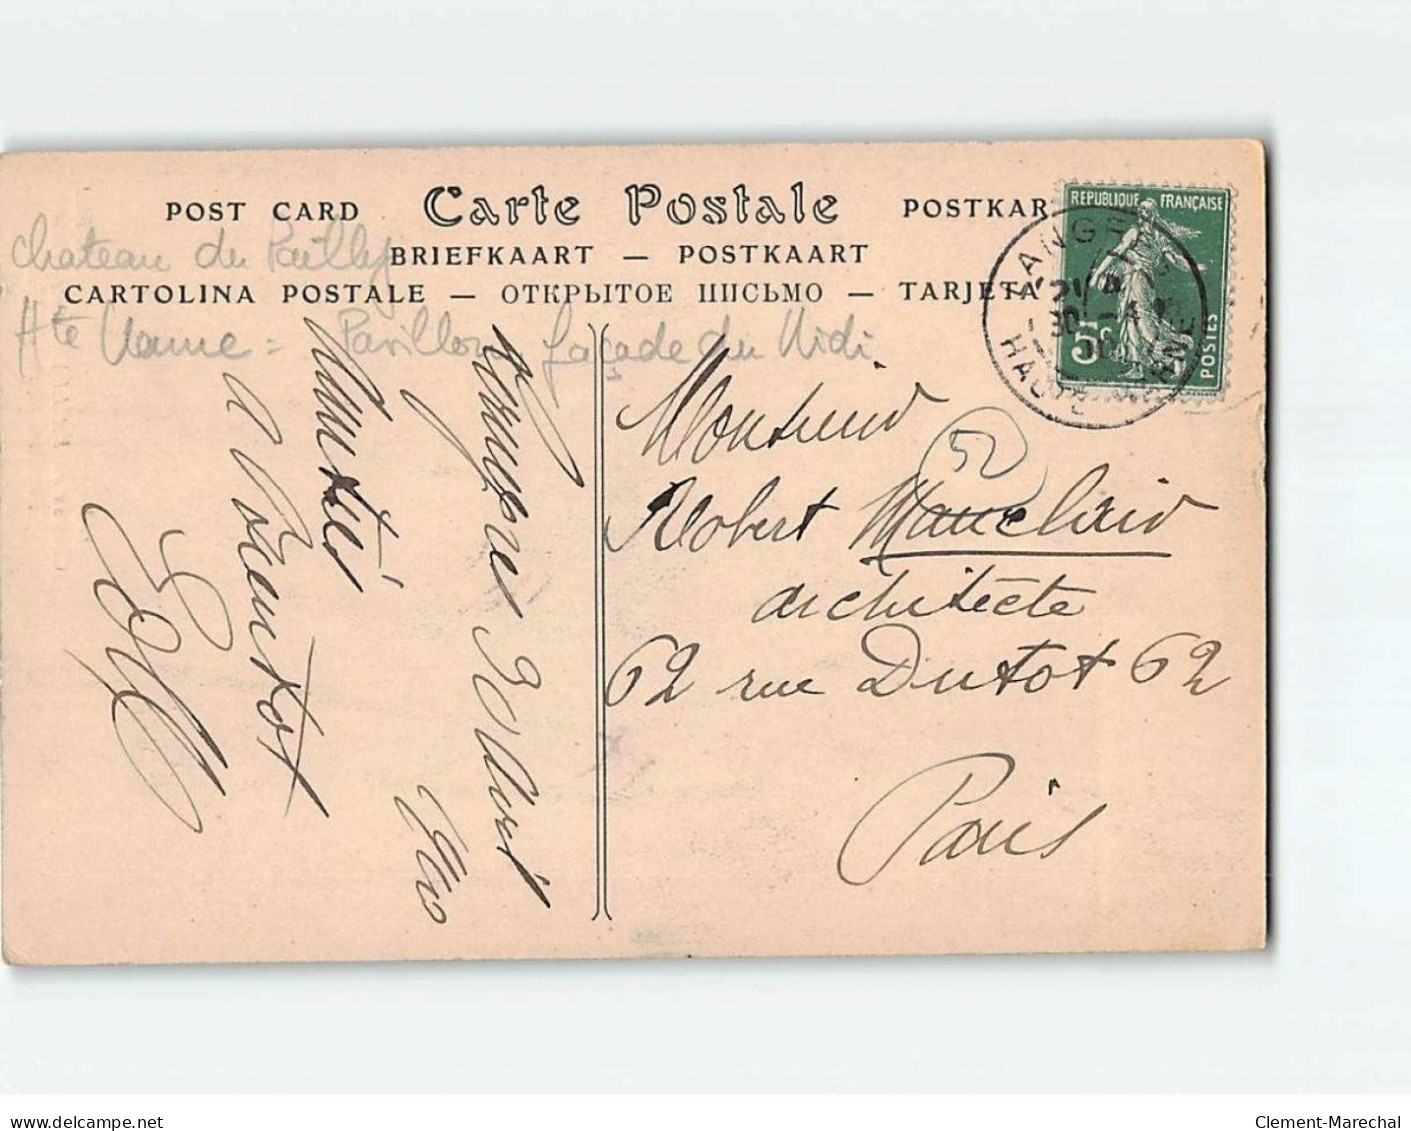 POST CARD Carte Postale POSTKAR
BRIEFKAART — POSTKAART
CARTOLINA POSTALE — ОТКРЫТОЕ ПИСЬМО — TARJETA
Chateau du Pailly
Hte Marne = Pavillon façade du Midi
REPUBLIQUE FRANÇAISE
5c
POSTES
LANGRES
30 -4
HAUTE MARNE
52
Monsieur
Robert Mauclair
architecte
62 rue Dutot 62
Paris
Langres 30 Avril
1910
Amitiés
www.delcampe.net
Clement-Marechal